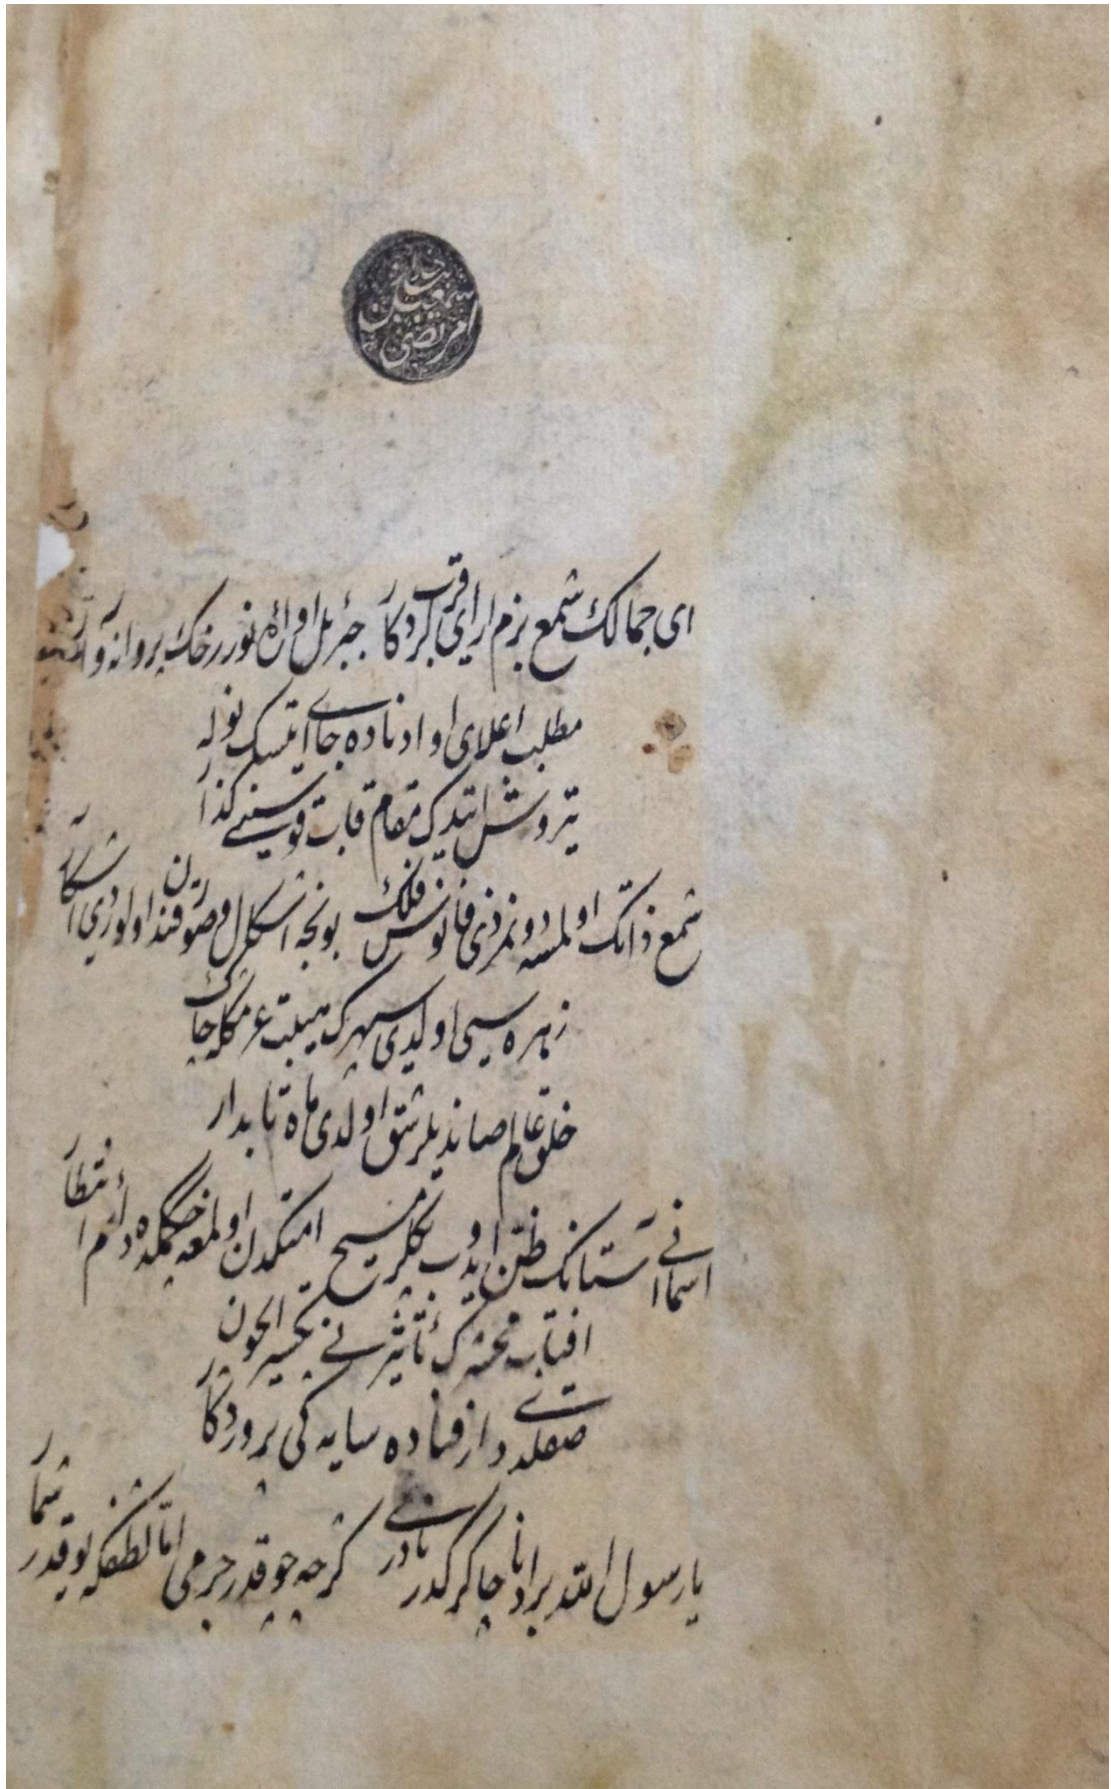 ای جمالك شمع بزم ارای قرب كردكار جبرئل اول نور رخك پروانه
مطلب اعلای او ادناده جای ايتسك نوله
تيروش ايتدك مقام قاب قوسيندن گذار
شمع ذاتك اولمسه دونمزدی فانوس فلك بونجه اشكال و صورتدن قند اولوردی اشكار
زهره سی اولدی سپهرك هيبت عزمكله چاك
خلق عالم صاندیلر شق اولدی ماه تابدار
اسمانی آستانك ظن ايدوب چكلر مسيح امتكدن اولمغه حكمكده دائم انتظار
افتاب محشرك تأثيرنی بخسير ايچون
صقلدی از فتاده سايه كی پروردكار
يا رسول الله برادنا چاكر كدر نادری كرچه چوقدر جرمی اما لطفكه يوقدر شمار